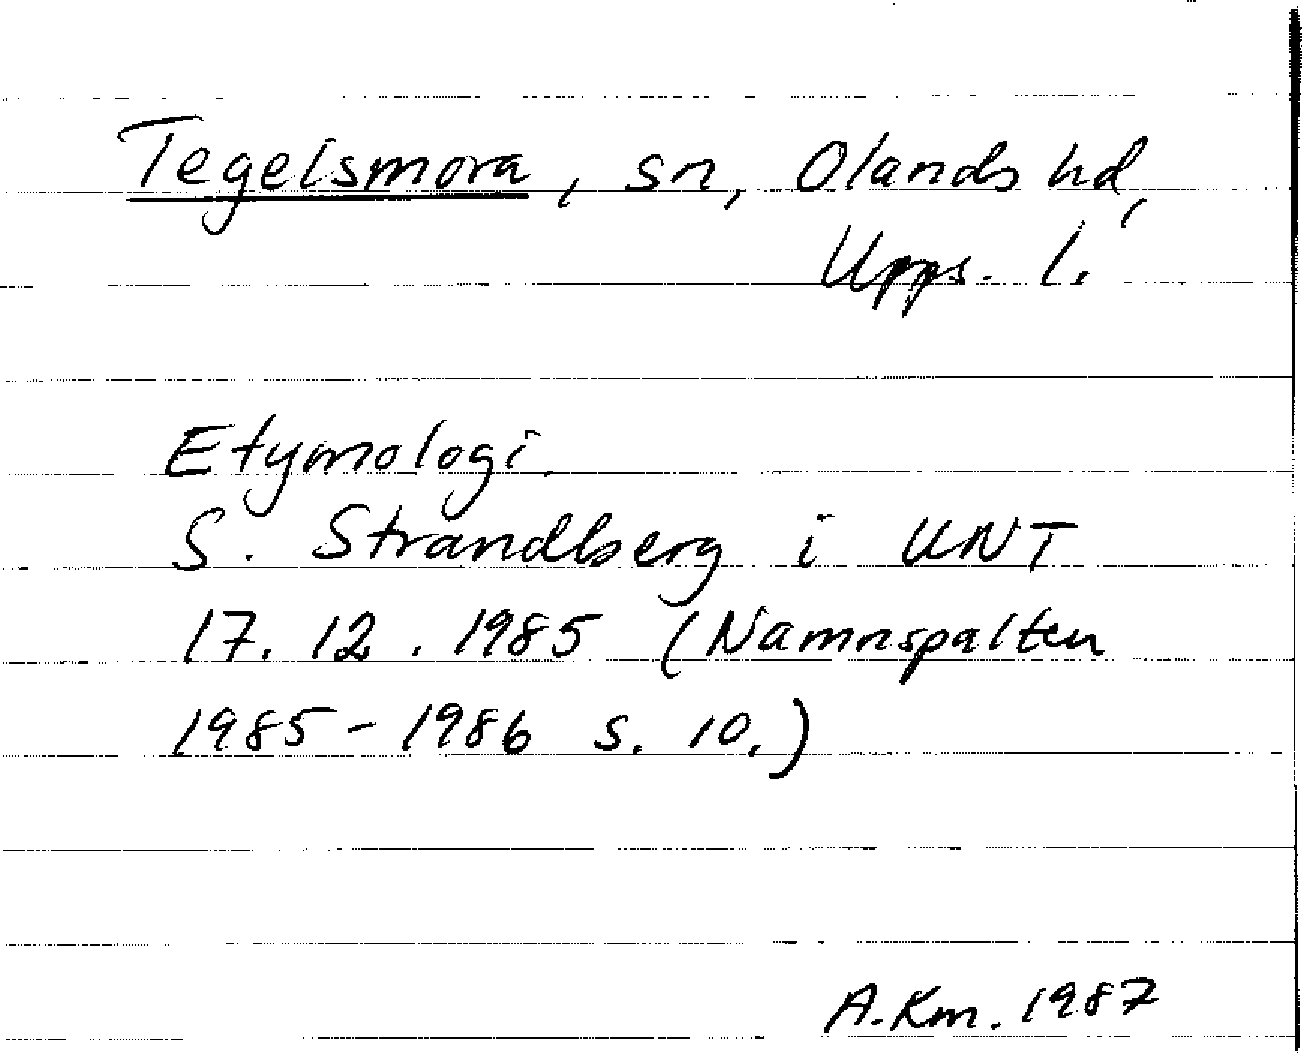 Tegelsmora, sn, Olands hd,
Upps. l.
Etymologi.
S. Strandberg i UNT
17.12.1985 (Namnspalten
1985-1986 s. 10.)
A.Km. 1987